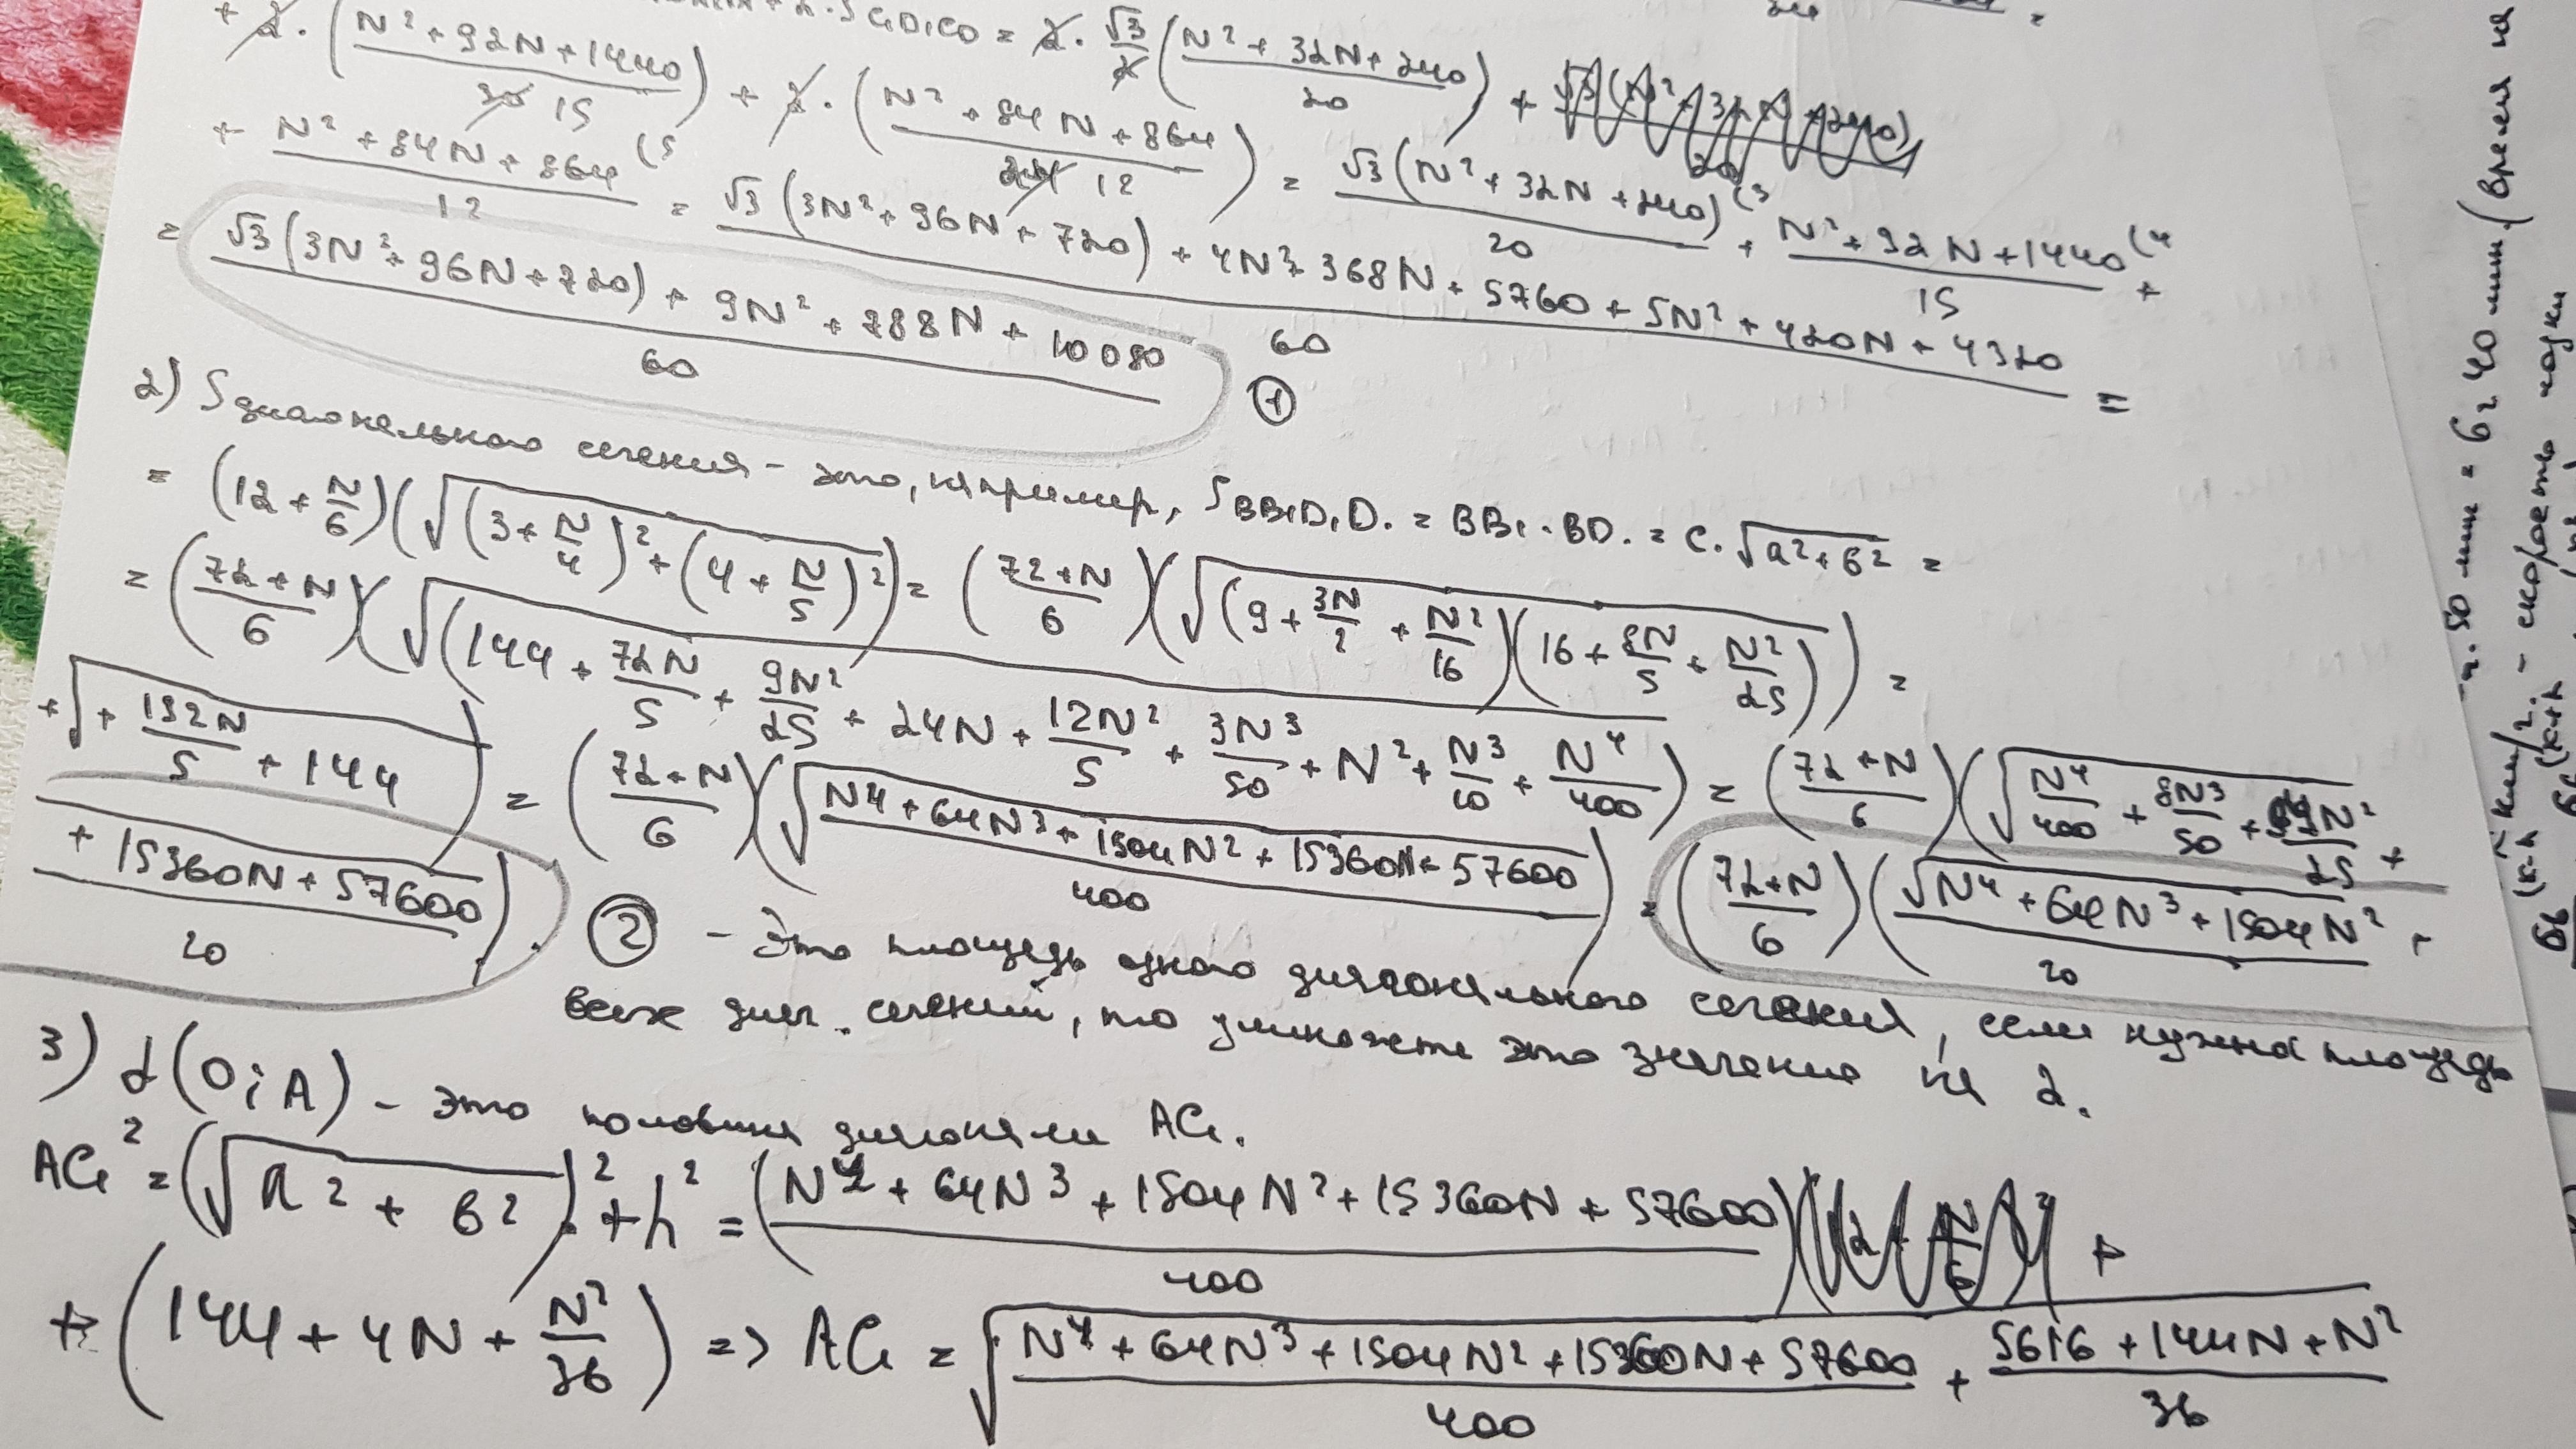 S C₁D₁CD = 2 · √3/2 (N² + 32N + 240)/20 +
+ 2 · ((N² + 92N + 1440)/30 15) + 2 · ((N² + 84N + 864)/24 12) = √3(N² + 32N + 240)⁽³/20 + N² + 92N + 1440⁽⁴/15 +
+ N² + 84N + 864⁽⁵/12 = (√3(3N² + 96N + 720) + 4N² + 368N + 5760 + 5N² + 420N + 4320)/60 =
= (√3(3N² + 96N + 720) + 9N² + 788N + 10080)/60 ①
2) S диагонального сечения - это, например, S BB₁D₁D. = BB₁ · BD. = c · √(a² + b²) =
= (12 + N/6)(√((3 + N/4)² + (4 + N/5)²)) = ((72 + N)/6)(√((9 + 3N/2 + N²/16)(16 + 8N/5 + N²/25))) =
= ((72 + N)/6)(√(144 + 72N/5 + 9N²/25 + 24N + 12N²/5 + 3N³/50 + N² + N³/10 + N⁴/400)) = ((72 + N)/6)(√(N⁴/400 + 8N³/50 + N²/25 +
+ √(+ 192N/5 + 144)) = ((72 + N)/6)(√((N⁴ + 64N³ + 1504N² + 15360N + 57600)/400)) = ((72 + N)/6)(√(N⁴ + 64N³ + 1504N² +/20
+ 15360N + 57600)/20). ② - Это площадь одного диагонального сечения, если нужна площадь
всех диаг. сечений, то умножьте это значение на 2.
3) d(O; A) - это половина диагонали AC₁.
AC₁² = (√(a² + b²))² + h² = ((N⁴ + 64N³ + 1504N² + 15360N + 57600)/400) +
+ (144 + 4N + N²/36) => AC₁ = √((N⁴ + 64N³ + 1504N² + 15360N + 57600)/400 + (5616 + 144N + N²)/36)
50 мин = 6 ч 40 мин. (время на
км/ч - скорость лодки